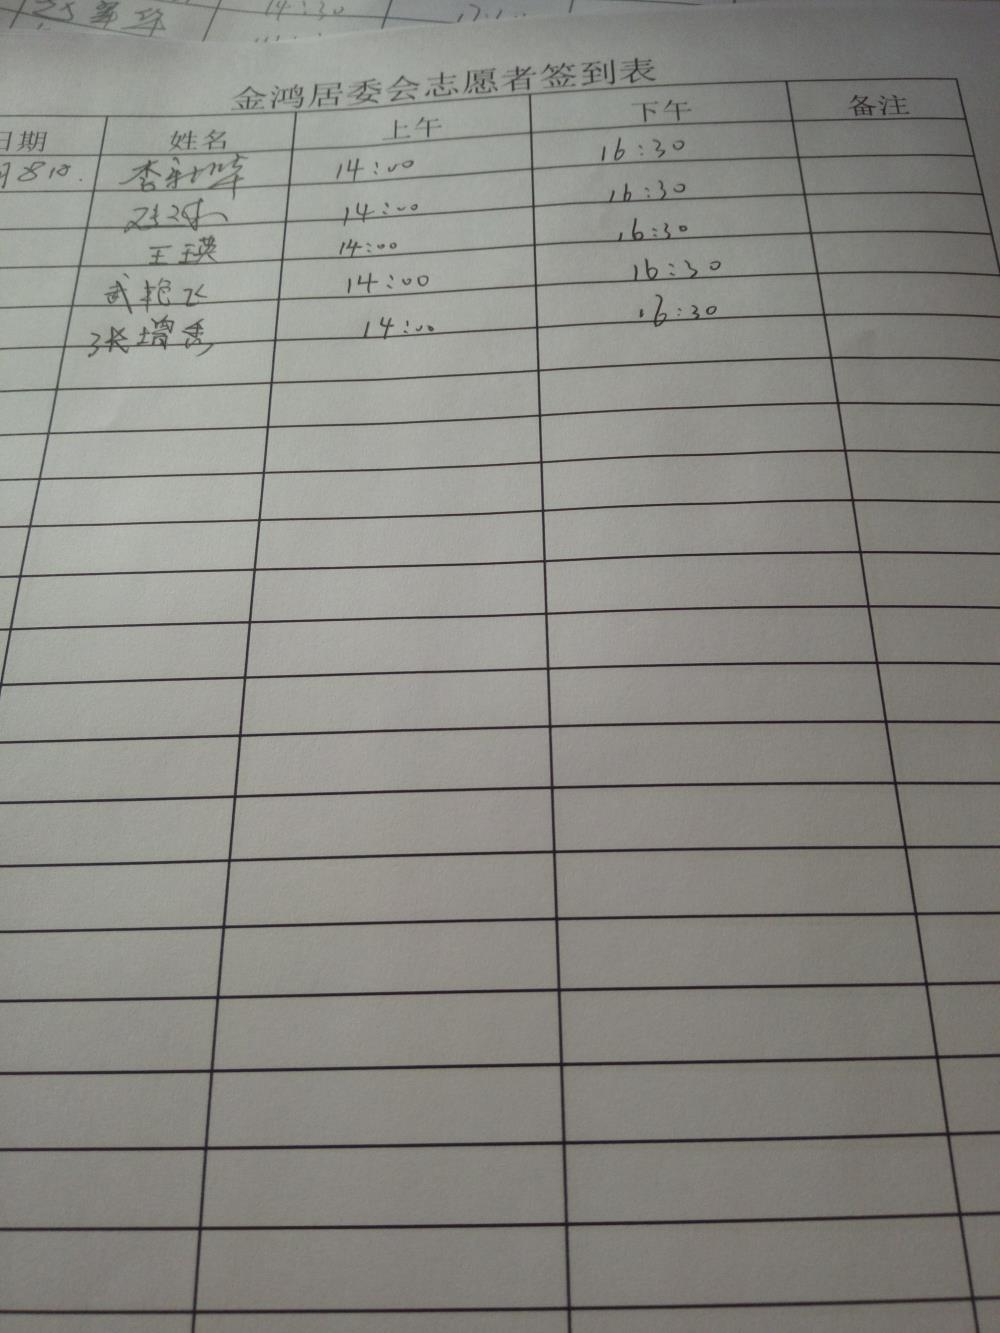 14:30
金鸿居委会志愿者签到表
日期 姓名 上午 下午 备注
月8日. 14:00 16:30
14:00 16:30
王瑛 14:00 16:30
武艳飞 14:00 16:30
张增秀 14:00 16:30